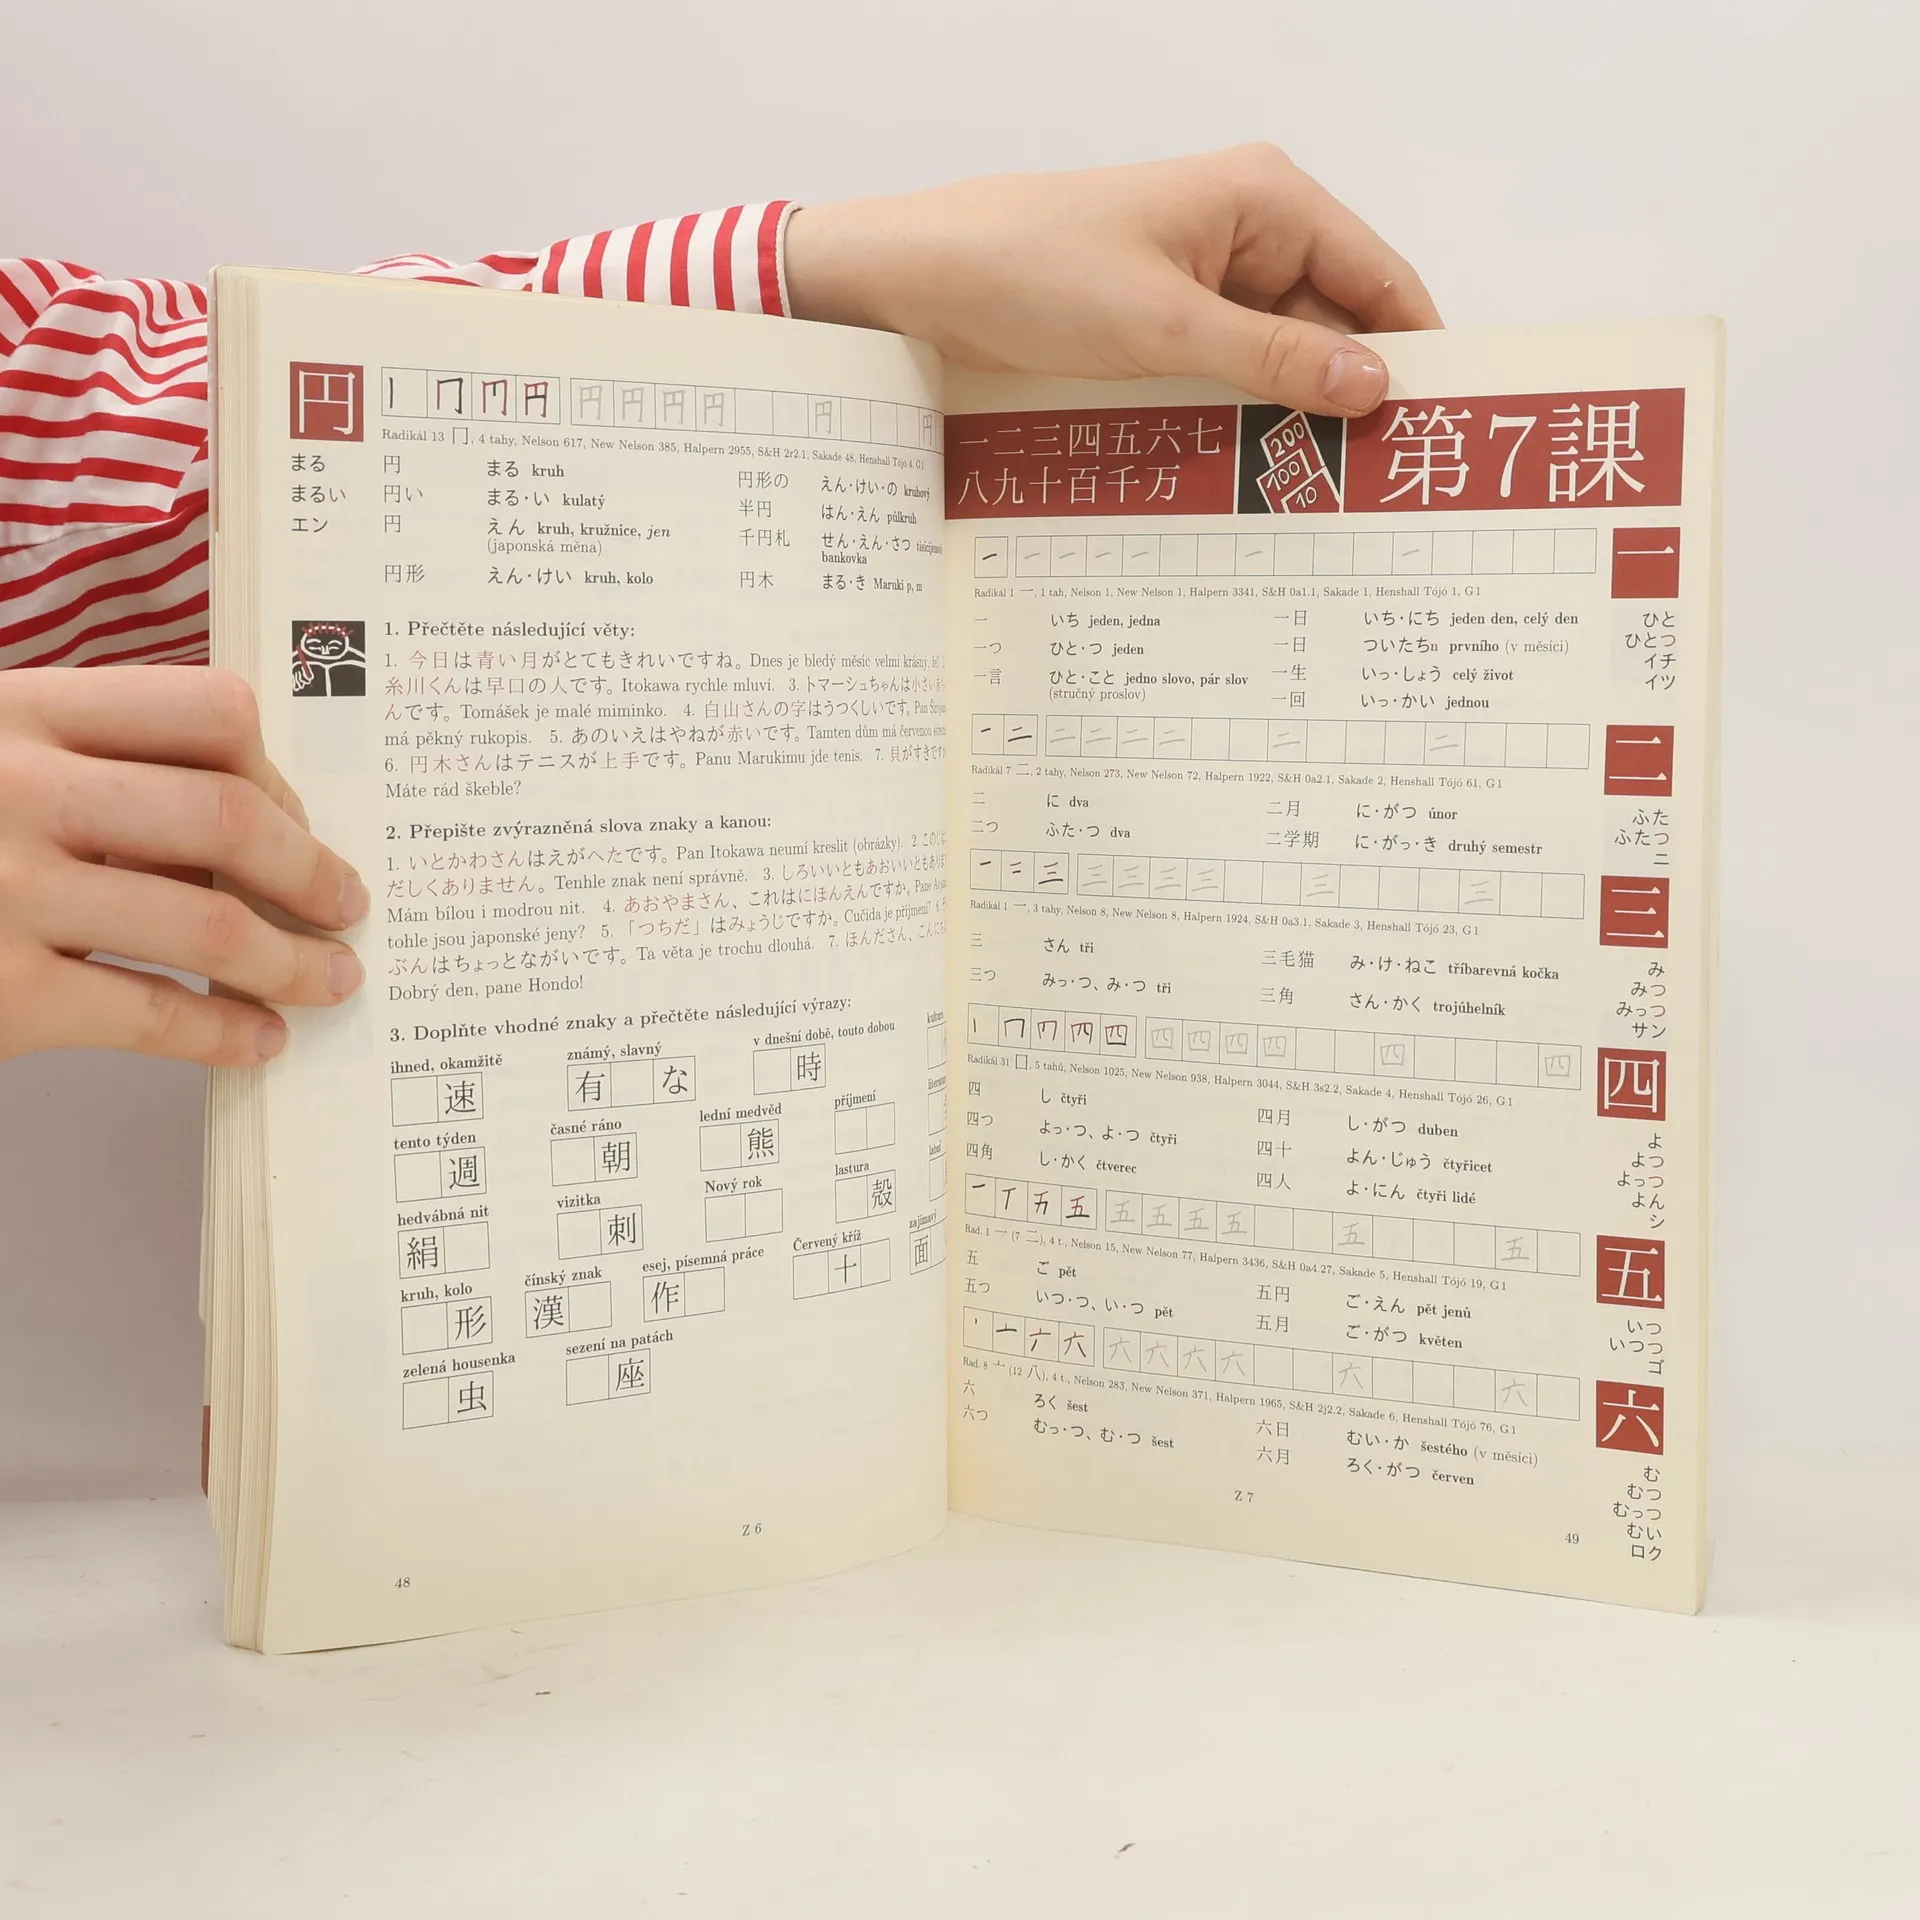 円
丨 冂 円 円 円 円 円 円 円 円
Radikál 13 冂, 4 tahy, Nelson 617, New Nelson 385, Halpern 2955, S&H 2r2.1, Sakade 48, Henshall Tójó 4, G1
まる
まるい
エン
円 まる kruh
円い まる・い kulatý
円 えん kruh, kružnice, jen
(japonská měna)
円形 えん・けい kruh, kolo
円形の えん・けい・の kruhový
半円 はん・えん půlkruh
千円札 せん・えん・さつ
bankovka
円木 まる・き Maruki p, m
1. Přečtěte následující věty:
1. 今日は青い月がとてもきれいですね。Dnes je bledý měsíc velmi krásný,
糸川くんは早口の人です。Itokawa rychle mluví. 3. トマーシュちゃんは小さい
んです。Tomášek je malé miminko. 4. 白山さんの字はうつくしいです。Pan
má pěkný rukopis. 5. あのいえはやねが赤いです。Tamten dům má červenou
6. 円木さんはテニスが上手です。Panu Marukimu jde tenis. 7. 貝がすきです
Máte rád škeble?
2. Přepište zvýrazněná slova znaky a kanou:
1. いとかわさんはえがへたです。Pan Itokawa neumí kreslit (obrázky). 2. このじは
だしくありません。Tenhle znak není správně. 3. しろいいともあおいいともあり
Mám bílou i modrou nit. 4. あおやまさん、これはにほんえんですか。Pane
tohle jsou japonské jeny? 5. 「つちだ」はみょうじですか。Cučida je příjmení? 6.
ぶんはちょっとながいです。Ta věta je trochu dlouhá. 7. ほんださん、こんに
Dobrý den, pane Hondo!
3. Doplňte vhodné znaky a přečtěte následující výrazy:
ihned, okamžitě známý, slavný v dnešní době, touto dobou
速 有 な 時
tento týden časné ráno lední medvěd příjmení
週 朝 熊
hedvábná nit vizitka Nový rok lastura
絹 刺 殻
kruh, kolo čínský znak esej, písemná práce Červený kříž zajímavý
形 漢 作 十 面
zelená housenka sezení na patách
虫 座
Z 6
48
一二三四五六七
八九十百千万
200
100
10
第7課
一 一 一 一 一 一 一
一
Radikál 1 一, 1 tah, Nelson 1, New Nelson 1, Halpern 3341, S&H 0a1.1, Sakade 1, Henshall Tójó 1, G1
一 いち jeden, jedna
一つ ひと・つ jeden
一言 ひと・こと jedno slovo, pár slov
(stručný proslov)
一日 いち・にち jeden den, celý den
一日 ついたちn prvního (v měsíci)
一生 いっ・しょう celý život
一回 いっ・かい jednou
ひと
ひとつ
イチ
イツ
一 二 二 二 二 二 二 二
二
Radikál 7 二, 2 tahy, Nelson 273, New Nelson 72, Halpern 1922, S&H 0a2.1, Sakade 2, Henshall Tójó 61, G1
二 に dva
二つ ふた・つ dva
二月 に・がつ únor
二学期 に・がっ・き druhý semestr
ふた
ふたつ
ニ
一 二 三 三 三 三 三 三 三
三
Radikál 1 一, 3 tahy, Nelson 8, New Nelson 8, Halpern 1924, S&H 0a3.1, Sakade 3, Henshall Tójó 23, G1
三 さん tři
三つ みっ・つ、み・つ tři
三毛猫 み・け・ねこ tříbarevná kočka
三角 さん・かく trojúhelník
み
みつ
みっつ
サン
四 四 四 四 四 四 四
四
Radikál 31 囗, 5 tahů, Nelson 1025, New Nelson 938, Halpern 3044, S&H 3s2.2, Sakade 4, Henshall Tójó 26, G1
四 し čtyři
四つ よっ・つ、よ・つ čtyři
四角 し・かく čtverec
四月 し・がつ duben
四十 よん・じゅう čtyřicet
四人 よ・にん čtyři lidé
よ
よつ
よっつ
よん
シ
五 五 五 五 五 五 五
五
Rad. 1 一 (7 二), 4 t., Nelson 15, New Nelson 77, Halpern 3436, S&H 0a4.27, Sakade 5, Henshall Tójó 19, G1
五 ご pět
五つ いつ・つ、い・つ pět
五円 ご・えん pět jenů
五月 ご・がつ květen
いつ
いつつ
ゴ
六 六 六 六 六 六 六
六
Rad. 8 亠 (12 八), 4 t., Nelson 283, New Nelson 371, Halpern 1965, S&H 2j2.2, Sakade 6, Henshall Tójó 76, G1
六 ろく šest
六つ むっ・つ、む・つ šest
六日 むい・か šestého (v měsíci)
六月 ろく・がつ červen
む
むつ
むっつ
むい
ロク
Z 7
49